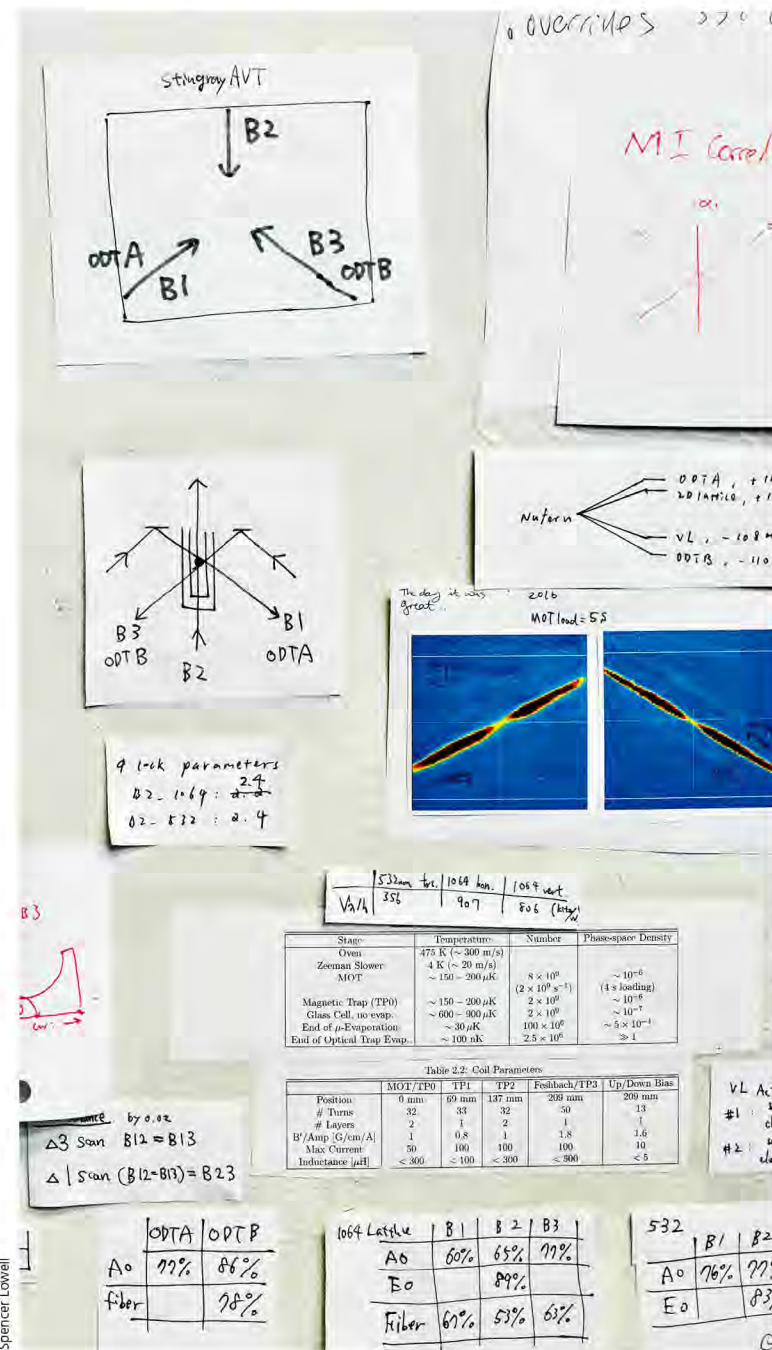 overrides
stingray AVT
B2
ODTA
B1
B3
ODTB
MI Correl
α.
Nufern
ODTA, + 1
2D lattice, + 1
VL, - 108 M
ODTB, - 110
B3
ODTB
B2
B1
ODTA
The day it was
great..
2016
MOT load = 5s
φ lock parameters
B2-1064: 2.4
B2-532: 2.4
B3
532nm tri. | 1064 hori. | 1064 vert.
356 | 907 | 806
Stage Temperature Number Phase-space Density
Oven 475 K (~ 300 m/s)
Zeeman Slower 4 K (~ 20 m/s)
MOT ~ 150 – 200 μK 8 × 10⁹ ~ 10⁻⁶
(2 × 10⁹ s⁻¹) (4 s loading)
Magnetic Trap (TP0) ~ 150 – 200 μK 2 × 10⁹ ~ 10⁻⁶
Glass Cell, no evap. ~ 600 – 900 μK 2 × 10⁹ ~ 10⁻⁷
End of μ-Evaporation ~ 30 μK 100 × 10⁶ ~ 5 × 10⁻⁴
End of Optical Trap Evap. ~ 100 nK 2.5 × 10⁶ ≫ 1
Table 2.2: Coil Parameters
MOT/TP0 TP1 TP2 Feshbach/TP3 Up/Down Bias
Position 0 mm 69 mm 137 mm 209 mm 209 mm
# Turns 32 33 32 50 13
# Layers 2 1 2 1 1
B'/Amp [G/cm/A] 1 0.8 1 1.8 1.6
Max Current 50 100 100 100 10
Inductance [μH] < 300 < 100 < 300 < 500 < 5
by 0.02
Δ3 scan B12 = B13
Δ1 scan (B12=B13) = B23
VL
#1:
#2:
ODTA | ODTB
Ao 77% 86%
fiber 78%
1064 Lattice B1 B2 B3
Ao 60% 65% 77%
Eo 89%
Fiber 67% 53% 63%
532 B1 B2
Ao 76% 77%
Eo 83
Spencer Lowell